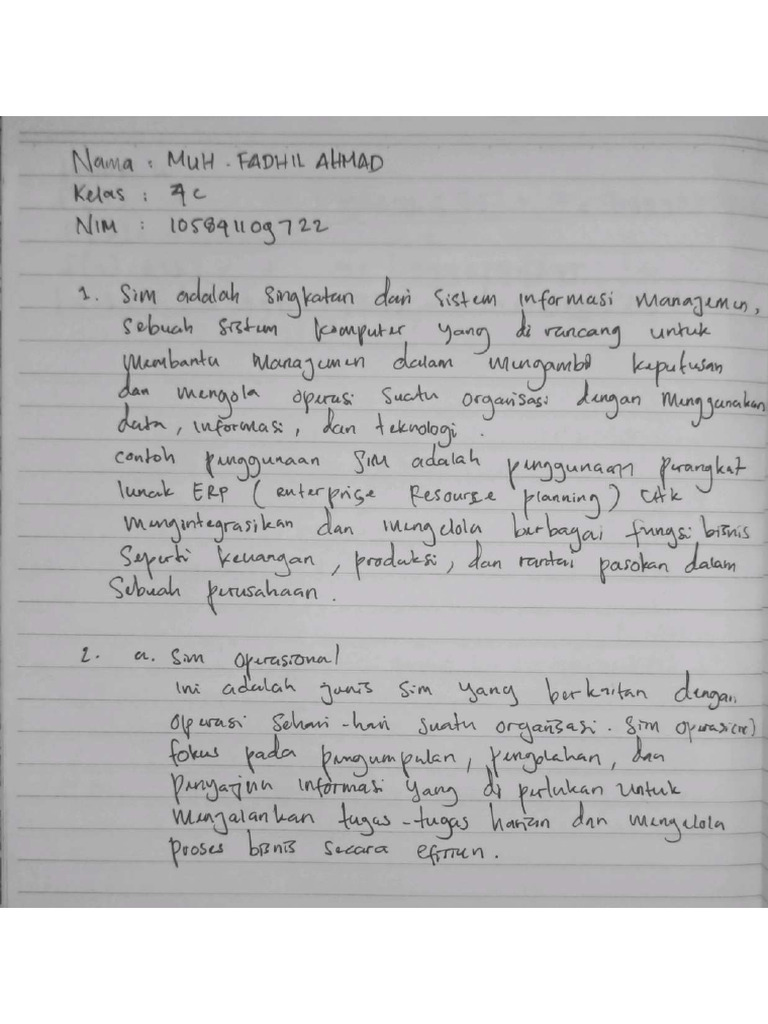 Nama : MUH . FADHIL AHMAD
Kelas : 4C
NIM : 105891109722
1. Sim adalah singkatan dari sistem informasi manajemen,
sebuah sistem komputer yang di rancang untuk
membantu manajemen dalam mengambil keputusan
dan mengola operasi suatu organisasi dengan menggunakan
data, informasi, dan teknologi.
contoh penggunaan sim adalah penggunaan perangkat
lunak ERP (enterprise Resourse planning)
mengintegrasikan dan mengelola berbagai fungsi bisnis
seperti keuangan, produksi, dan rantai pasokan dalam
sebuah perusahaan.
2. a. Sim operasional
ini adalah jenis sim yang berkaitan dengan
operasi sehari-hari suatu organisasi. Sim
fokus pada pengumpulan, pengolahan, dan
penyajian informasi yang di perlukan untuk
menjalankan tugas-tugas harian dan mengelola
proses bisnis secara efisien.